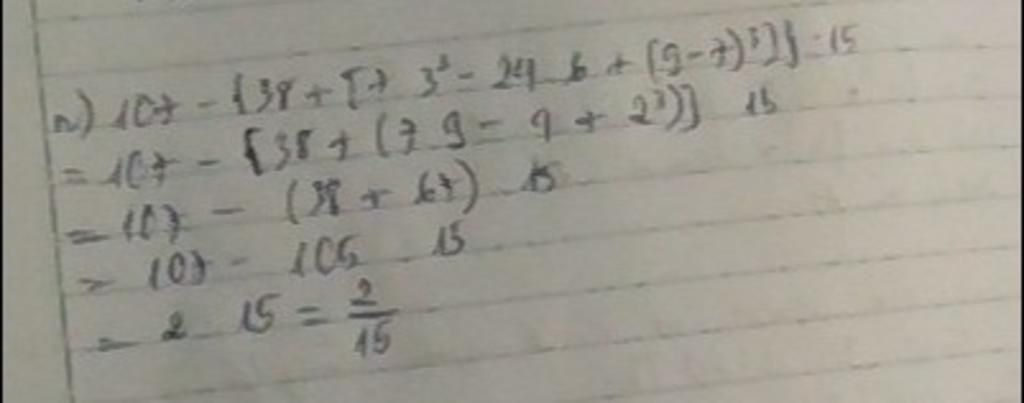 n) 107 - {38 + [7 3² - 24 6 + (9-7)³]} : 15
= 107 - {38 + (7 9 - 4 + 2³)} 15
= 107 - (38 + 67) 15
= 107 - 105 15
= 2 15 = 2/15